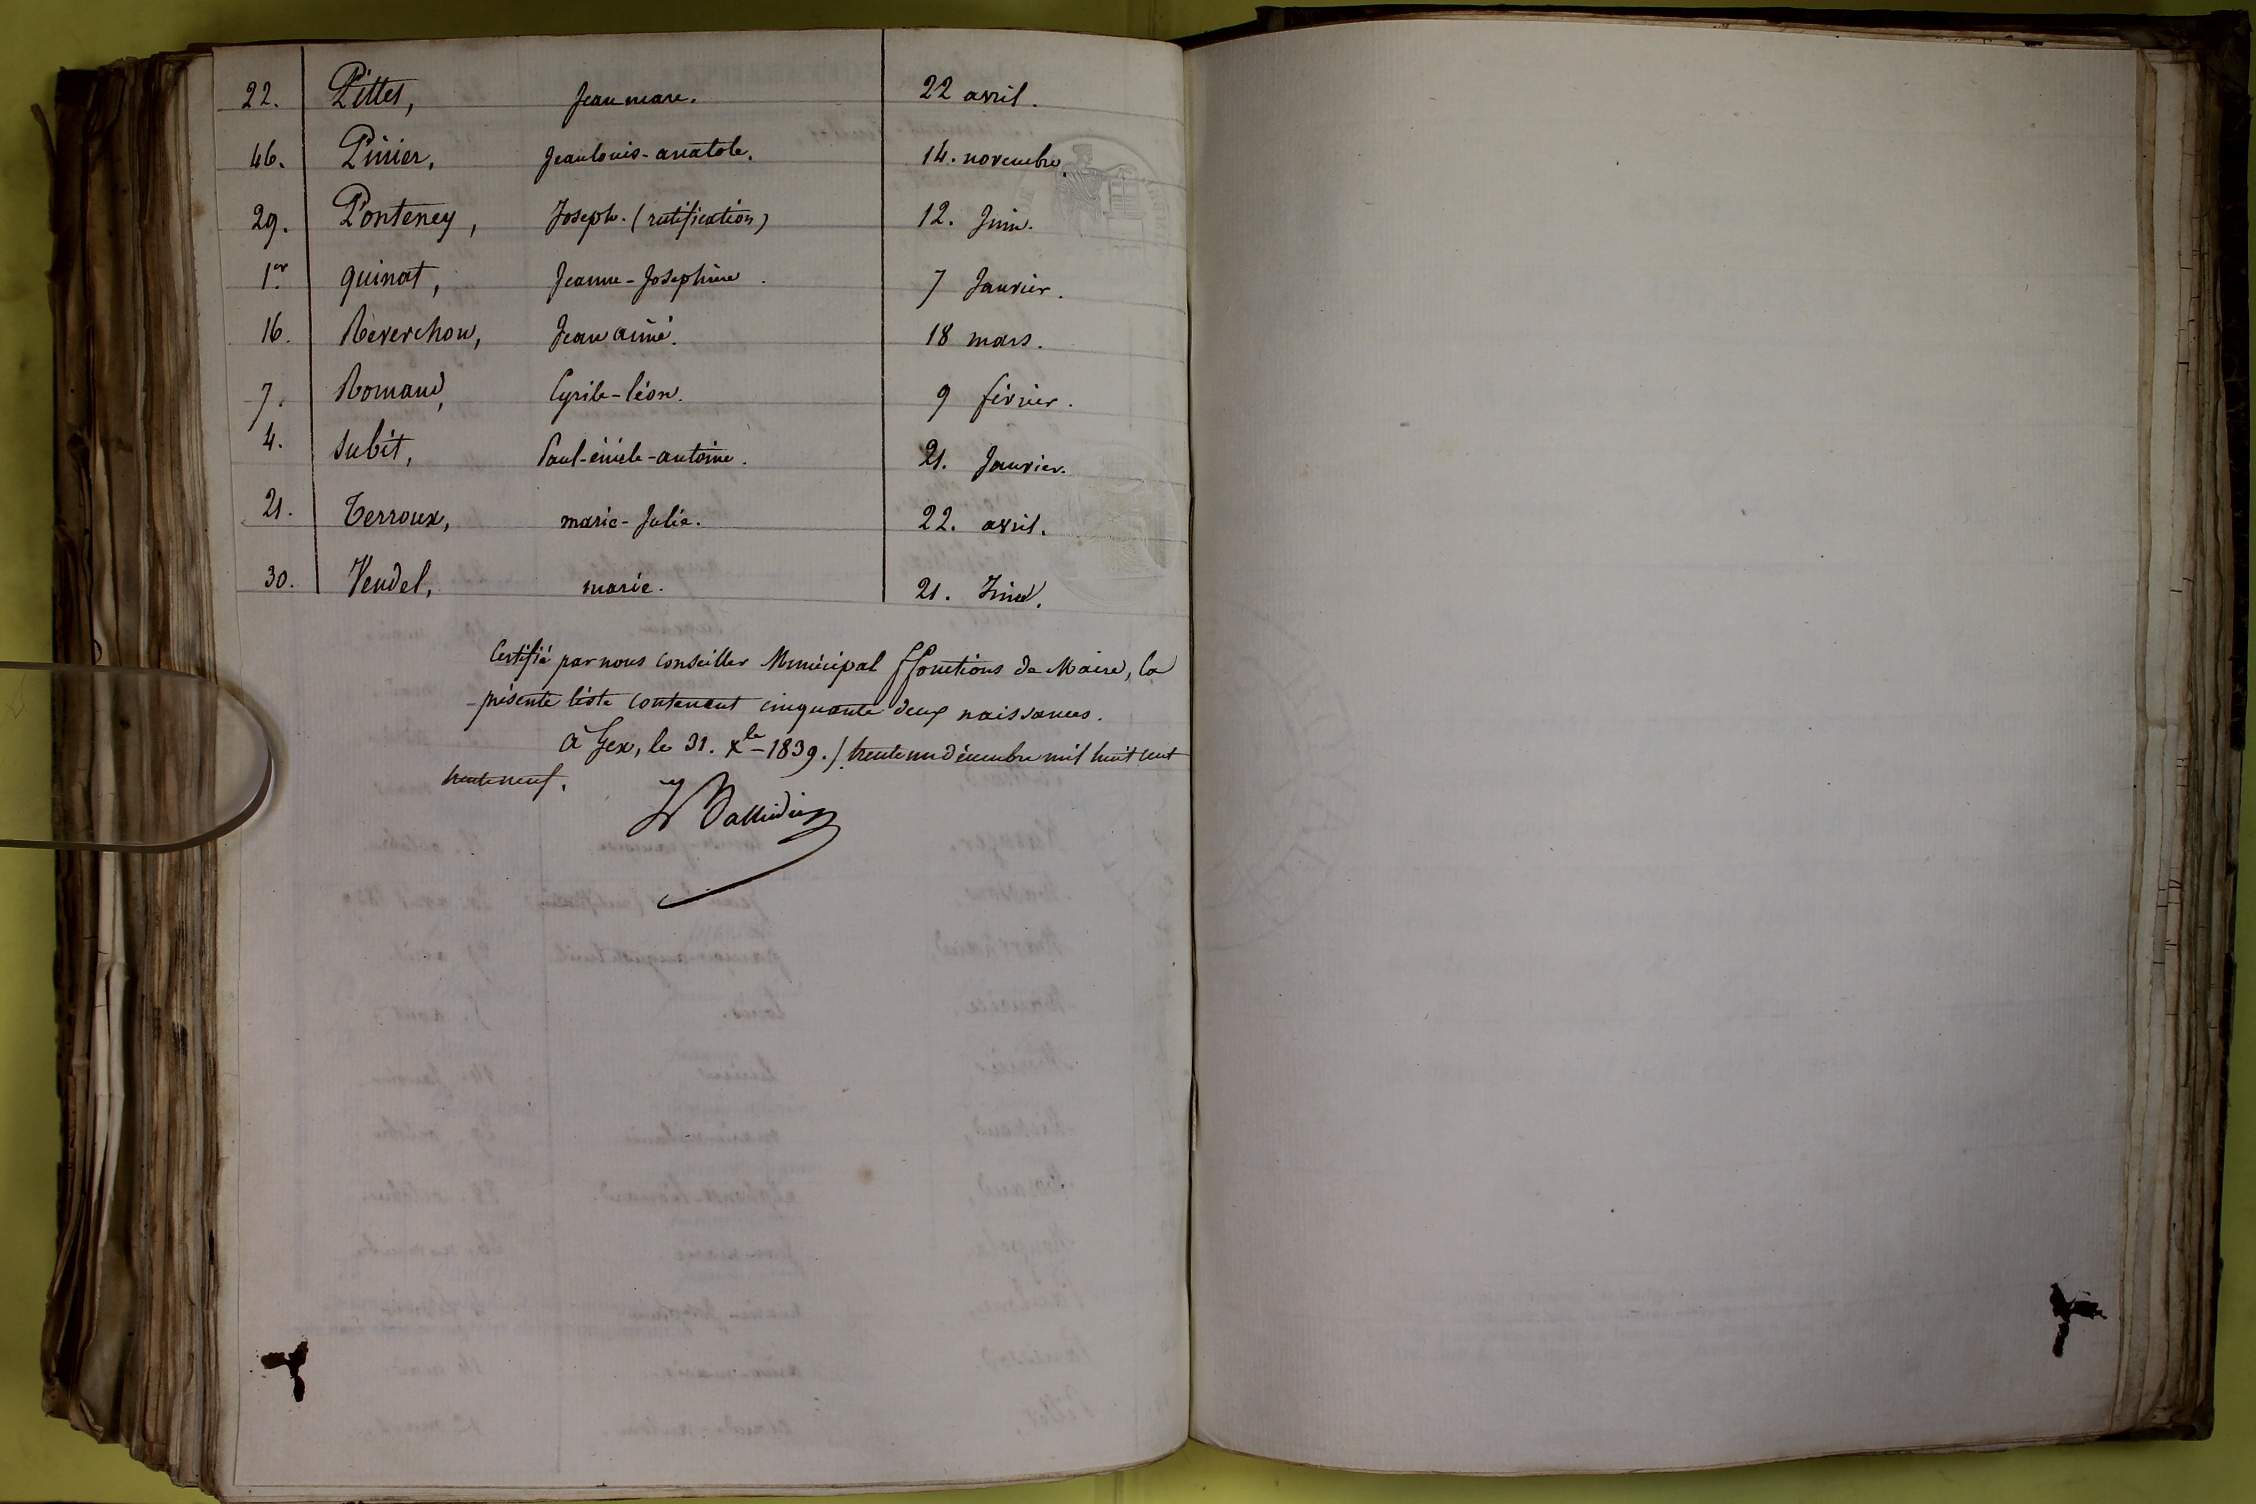 22. Pittet, Jean marc. 22 avril.
46. Pinier, Jean louis-anatole. 14. novembre.
29. Ponteney, Joseph. (ratification) 12. Juin.
1er quinat, Jeanne-Josephine. 7 Janvier.
16. Reverchon, Jean aimé. 18 mars.
7. Romand, Cyrile-léon. 9 février.
4. Subit, Paul-émile-antoine. 21. Janvier.
21. Terroux, marie-Julie. 22. avril.
30. Vendel, marie. 21. Juin.
Certifié par nous Conseiller Municipal ffonctions de Maire, la
présente liste contenant cinquante deux naissances.
à Gex, le 31. Xbre 1839. /. trente un décembre mil huit cent
trente neuf.